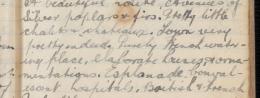 A beautiful route. Avenues of
silver poplars & firs. Pretty little
chalets & chateaux. Town very
pretty indeed. Finely French water-
ing place. Elaborate houses & orna-
mentations. Esplanade, conval-
escent hospitals, British & French